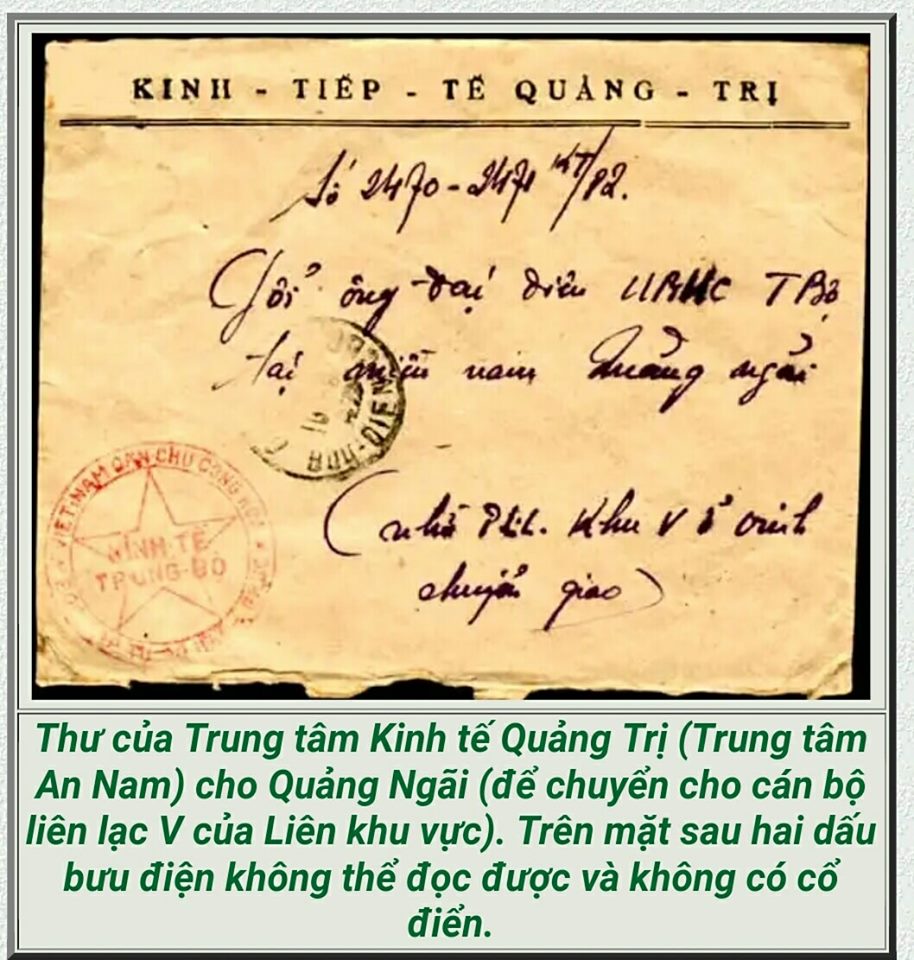 KINH - TIẾP - TẾ QUẢNG - TRỊ
Số 2470-2471 KT/P2.
Gởi ông đại diện UBHC TBộ
tại miền nam Quảng ngãi
BUU-DIEN
VIET-NAM DAN CHU CONG HOA
KINH TẾ
TRUNG-BO
(nhờ Khu V ở
chuyển giao)
Thư của Trung tâm Kinh tế Quảng Trị (Trung tâm
An Nam) cho Quảng Ngãi (để chuyển cho cán bộ
liên lạc V của Liên khu vực). Trên mặt sau hai dấu
bưu điện không thể đọc được và không có cổ
điển.